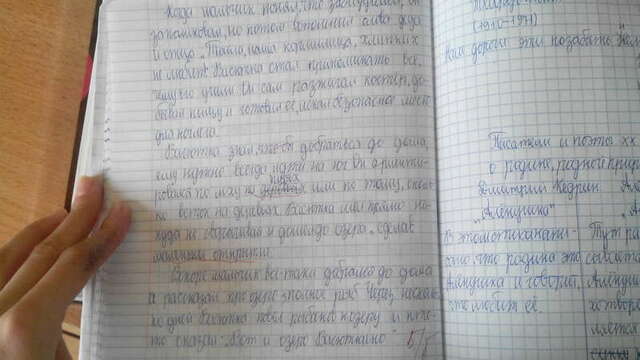 Когда мальчик понял, что заблудился, он
запаниковал, но потом вспомнил слова деда
и отца „Тайга, наша кормилица, хлипких
не любит. Васютка стал припоминать все,
чему его учили. Он сам разжигал костёр, до-
бывал пищу и готовил её, искал безопасное место
для ночлега.
Васютка знал, что бы добраться до дома,
ему нужно всегда идти на юг. Он ориенти-
ровался по мху на деревьях или по
веток на деревьях. Васютка шёл прямо ни-
куда не сворачивая и дошёл до озера, сделав
открытие.
Вскоре мальчик всё-таки добрался до дома
и рассказал про озеро полное рыб. Через несколь-
ко дней Васютка повёл рыбаков к озеру и
сказал: „Вот и озеро Васюткино"
5/5
(1910-1971)
Нам дороги эти позабыть
Писатели и поэты XX
о родине, родной
Дмитрий Кедрин
„Алёнушка"
В этом стихотворении
что родина это
Алёнушка и говорит,
что любит её.
Тут
Алёнуш